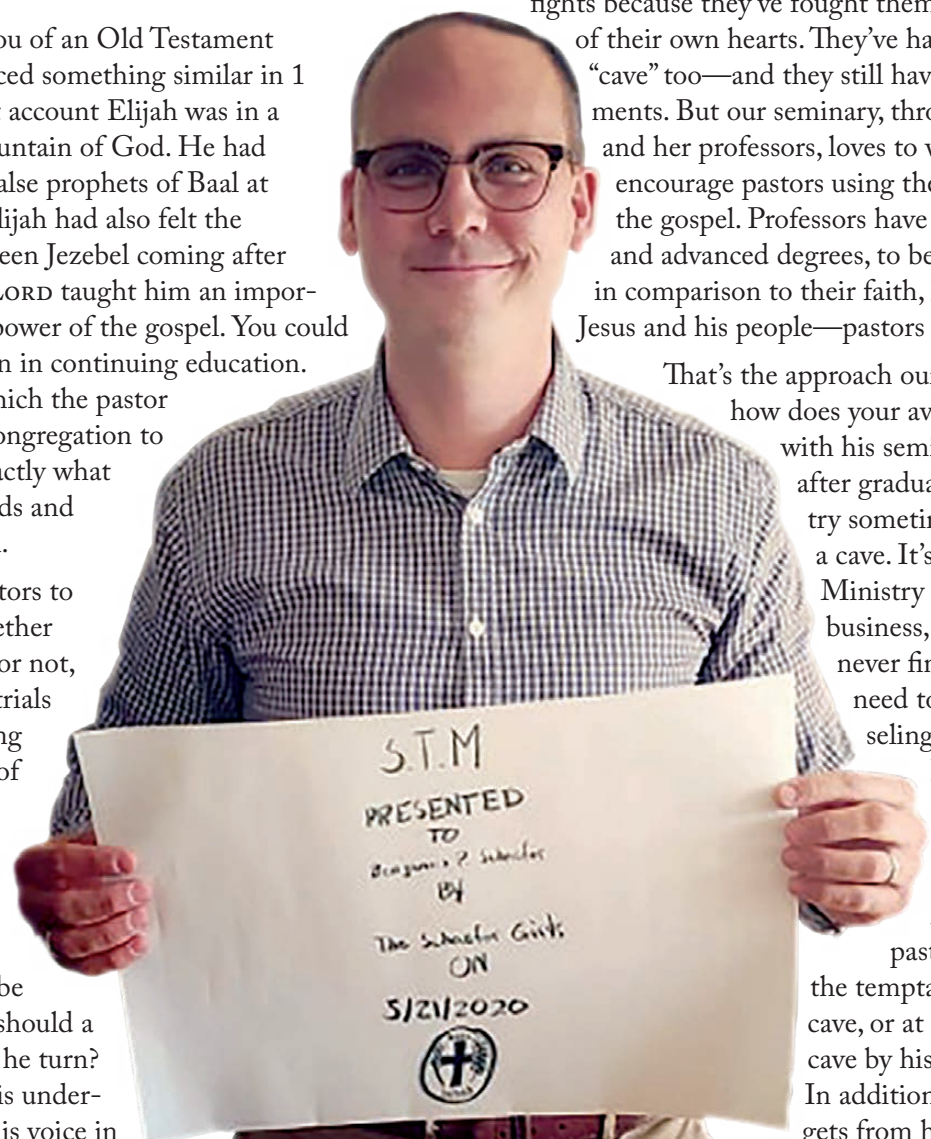 ou of an Old Testament
ced something similar in 1
t account Elijah was in a
untain of God. He had
alse prophets of Baal at
lijah had also felt the
een Jezebel coming after
LORD taught him an impor-
power of the gospel. You could
n in continuing education.
hich the pastor
ongregation to
actly what
ds and
.
tors to
ether
or not,
trials
ng
of
be
should a
he turn?
is under-
is voice in
fights because they've fought them
of their own hearts. They've ha
"cave" too—and they still hav
ments. But our seminary, thro
and her professors, loves to v
encourage pastors using the
the gospel. Professors have
and advanced degrees, to be
in comparison to their faith,
Jesus and his people—pastors
That's the approach ou
how does your av
with his semi
after gradua
try someti
a cave. It's
Ministry
business,
never fin
need to
seling
past
the tempta
cave, or at
cave by his
In addition
gets from h
S.T.M
PRESENTED
TO
Benjamin P Schaefer
BY
The Schaefer Girls
ON
5/21/2020